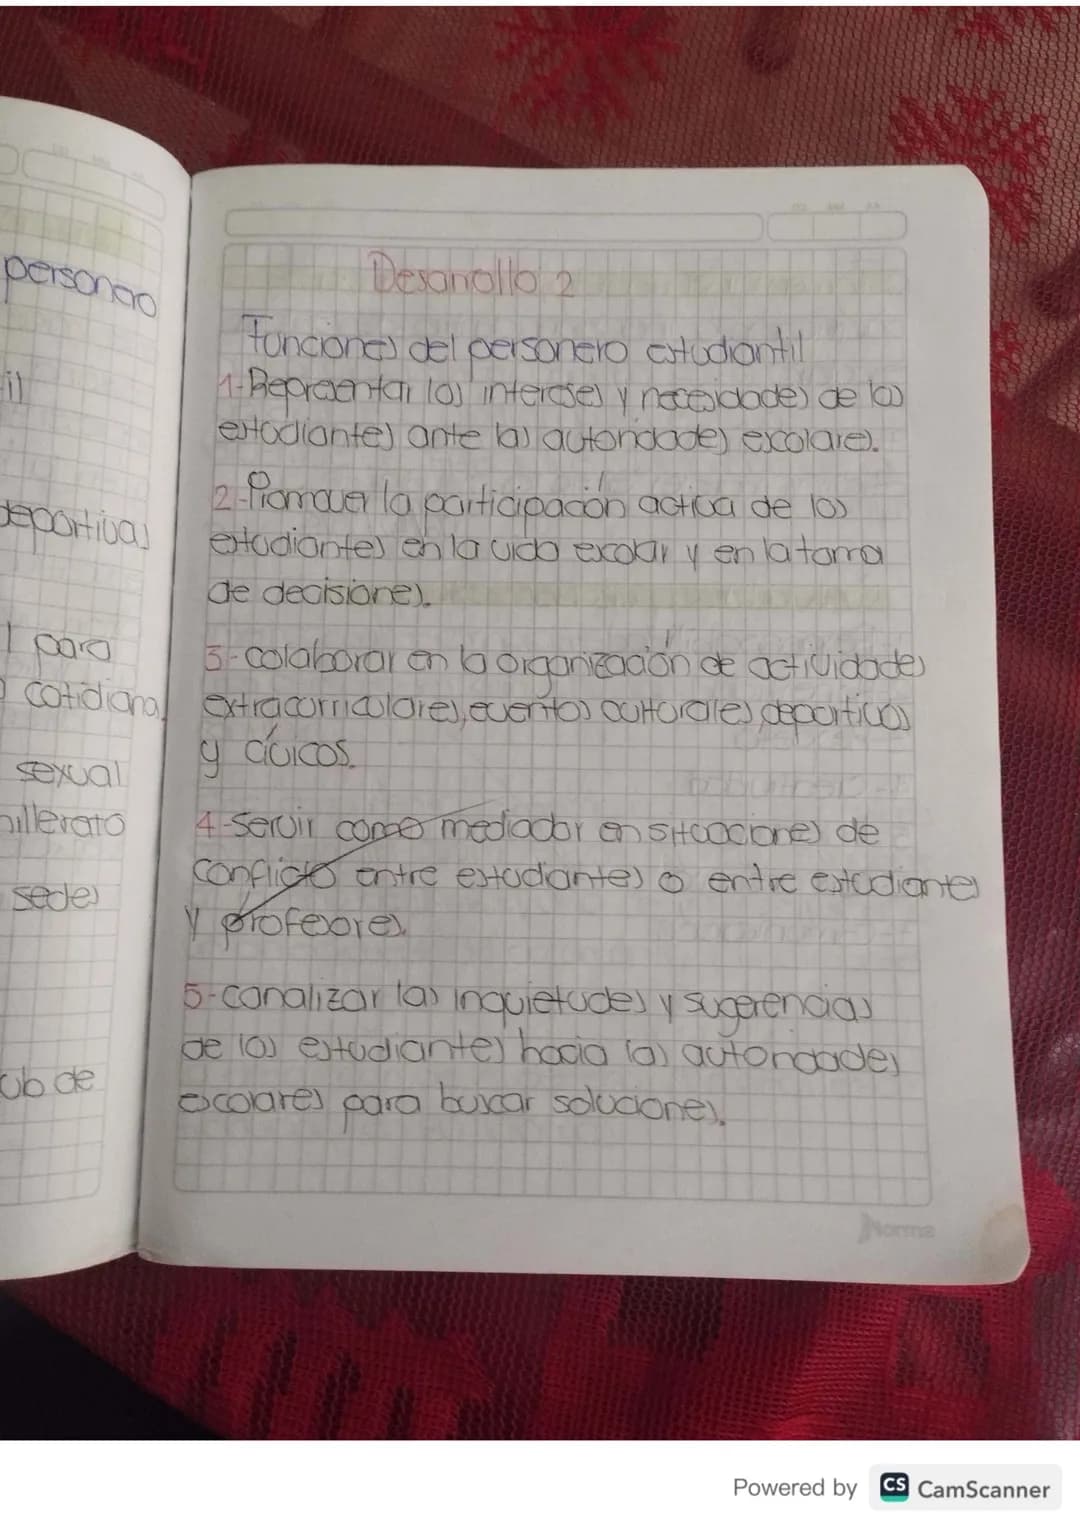 personero
il
deportivas
l para
cotidiana
sexual
hillerato
sedes
ub de
Desarrollo 2
Funciones del personero estudiantil
1-Representar los intereses y necesidades de los
estudiantes ante las autoridades escolares.
2-Promover la participación activa de los
estudiantes en la vida escolar y en la toma
de decisiones.
3-colaborar en la organización de actividades
extracurriculares, eventos culturales, deportivos
y cívicos.
4-servir como mediador en situaciones de
conflicto entre estudiantes o entre estudiantes
y profesores.
5-canalizar las inquietudes y sugerencias
de los estudiantes hacia las autoridades
escolares para buscar soluciones.
Norma
Powered by CS CamScanner